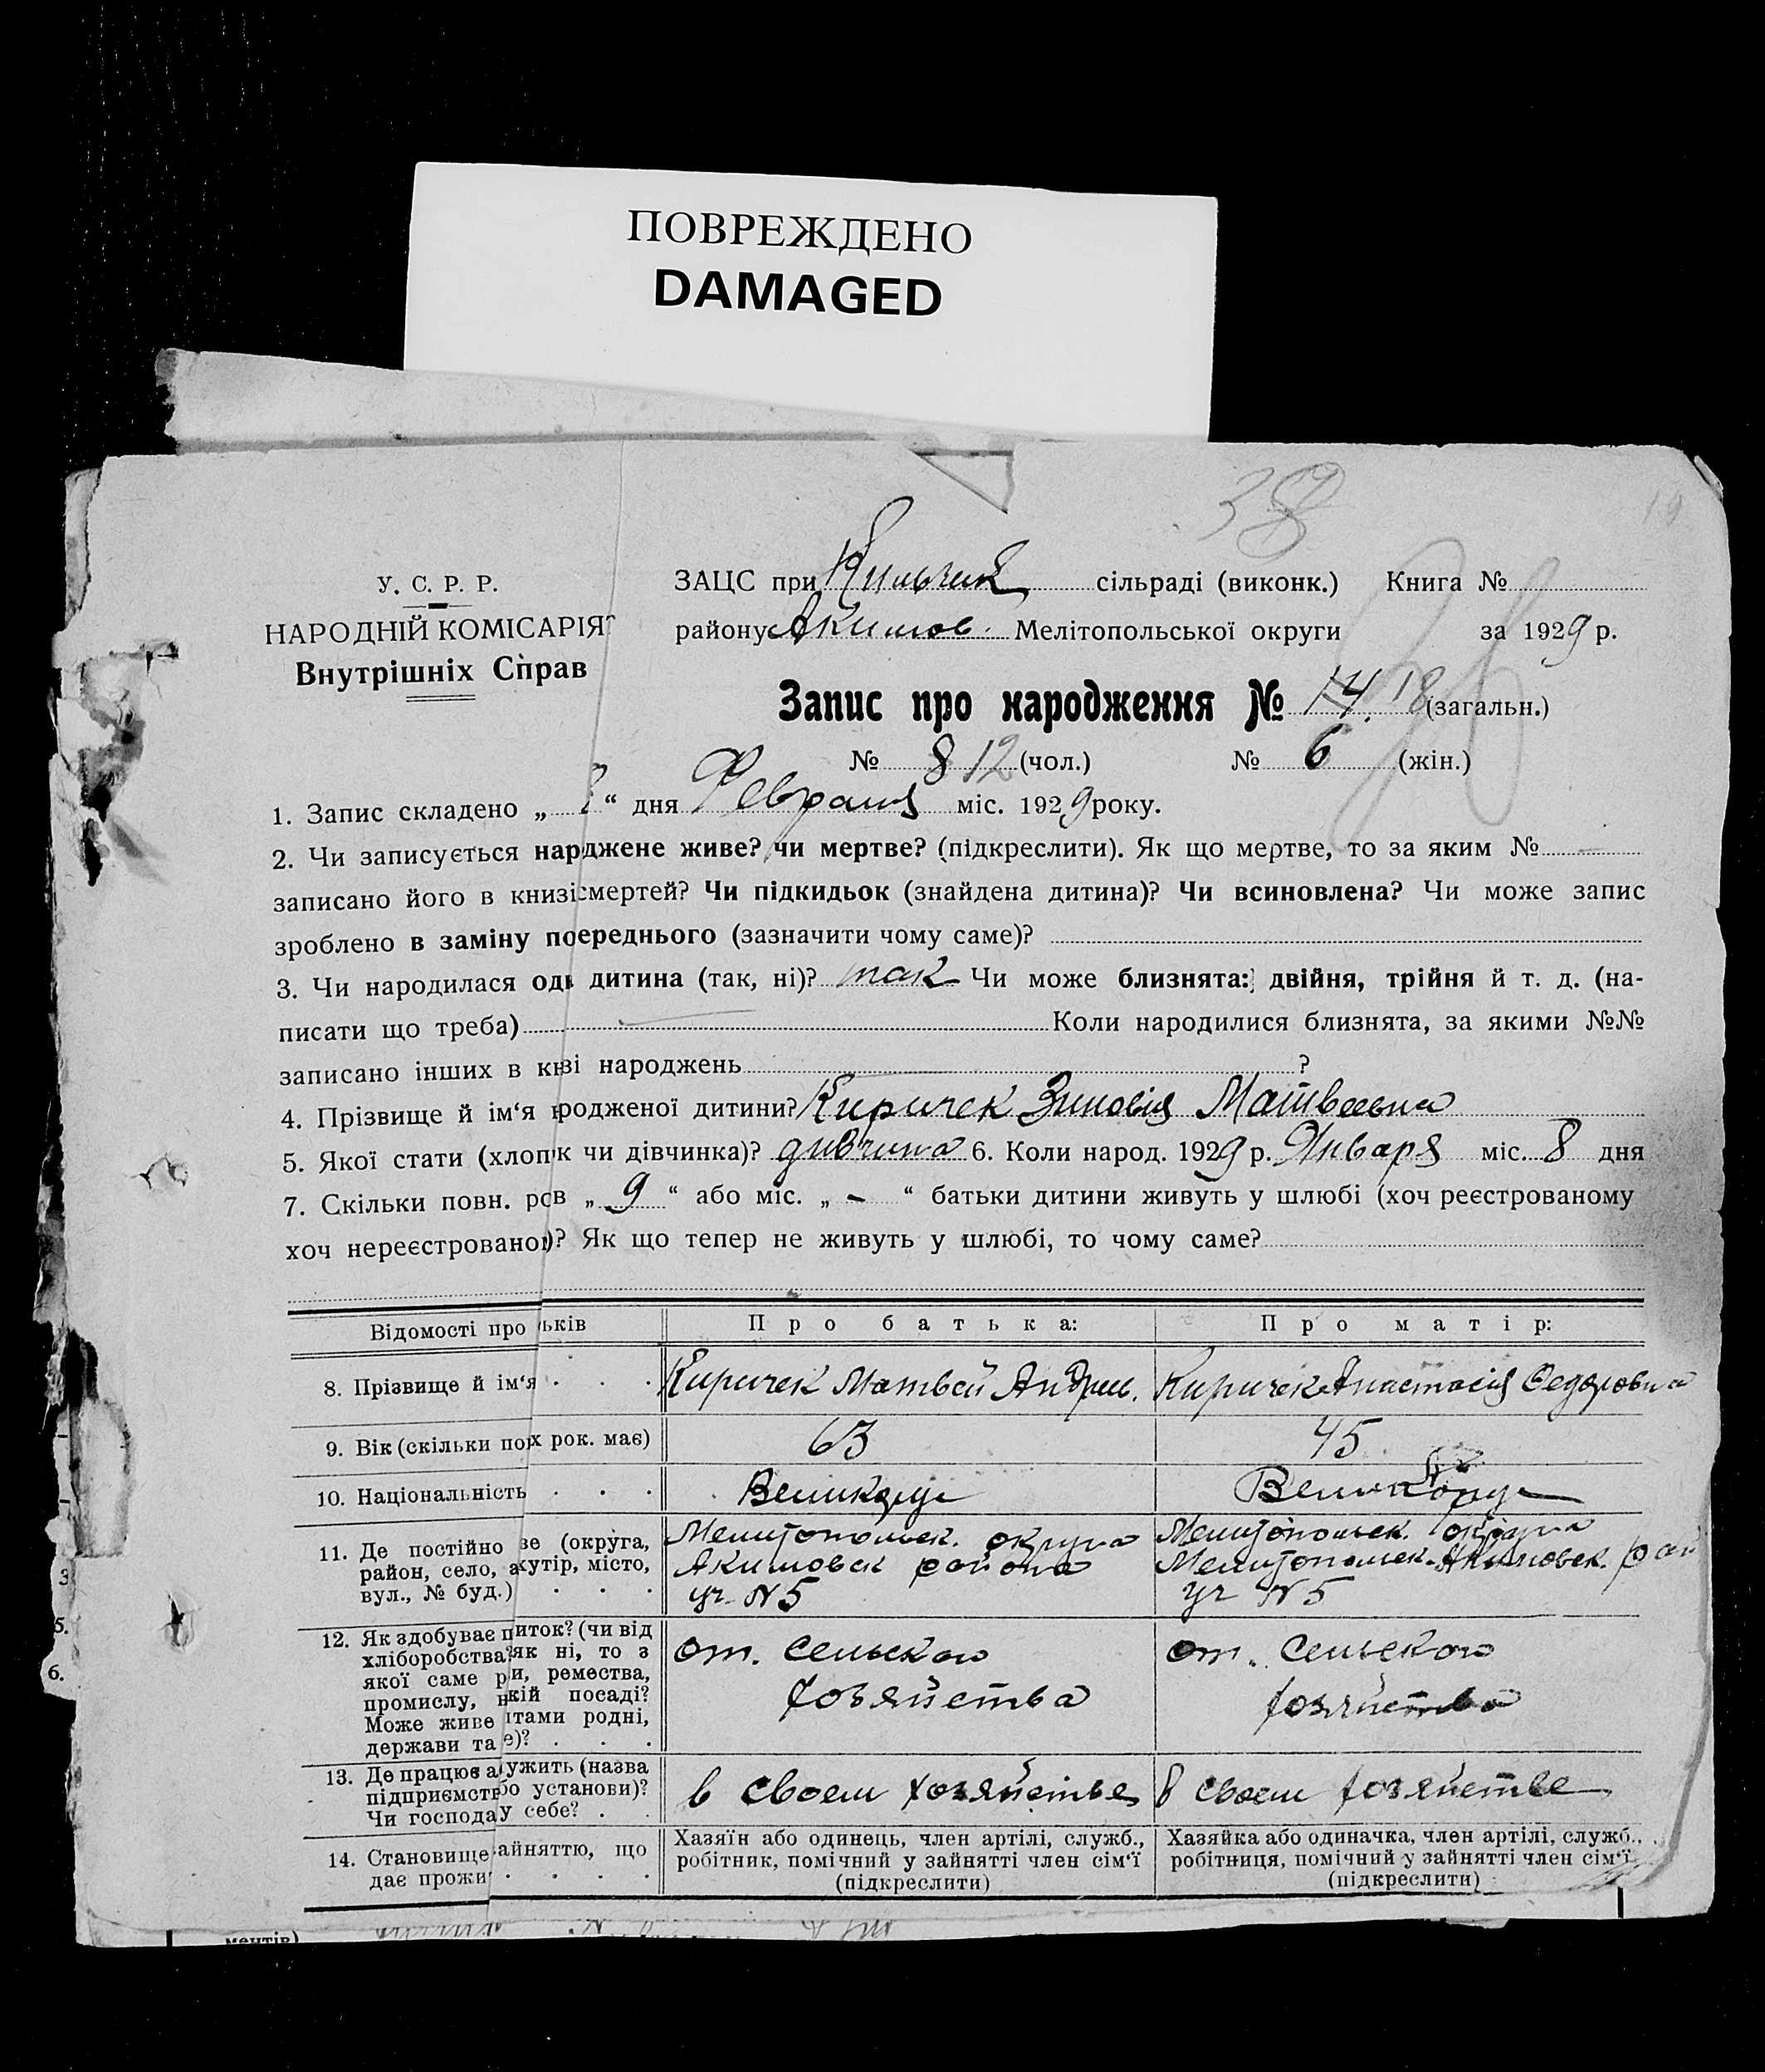 ПОВРЕЖДЕНО
DAMAGED
38
19
У. С. Р. Р.
НАРОДНІЙ КОМІСАРІЯ
Внутрішніх Справ
ЗАЦС при сільраді (виконк.) Книга №
району Акимов. Мелітопольської округи за 1929 р.
Запис про народження № 14. 18 (загальн.)
№ 8 12 (чол.) № 6 (жін.)
1. Запис складено „ “ дня Февраля міс. 1929 року.
2. Чи записується нар джене живе? чи мертве? (підкреслити). Як що мертве, то за яким №
записано його в книзі смертей? Чи підкидьок (знайдена дитина)? Чи всиновлена? Чи може запис
зроблено в заміну по ереднього (зазначити чому саме)?
3. Чи народилася од дитина (так, ні)? так Чи може близнята: двійня, трійня й т. д. (на-
писати що треба) Коли народилися близнята, за якими №№
записано інших в кн зі народжень ?
4. Прізвище й ім‘я родженої дитини? Киричек Зиновія Матвеевна
5. Якої стати (хлоп к чи дівчинка)? дивчина 6. Коли народ. 1929 р. Января міс. 8 дня
7. Скільки повн. ро в „ 9 “ або міс. „ - “ батьки дитини живуть у шлюбі (хоч реєстрованому
хоч нереєстровано )? Як що тепер не живуть у шлюбі, то чому саме?
Відомості про ьків
Про батька:
Про матір:
8. Прізвище й ім‘я . . .
Киричек Матвей Андрив.
Киричек Анастасія Федоровна
9. Вік (скільки по х рок. має)
63
45
10. Національність . . .
Великорус
Великорус
11. Де постійно ве (округа,
район, село, хутір, місто,
вул., № буд.) . . .
Мелитопольск. округа
Акимовск района
уч. N 5
Мелитопольск. округа
Мелитопольск. Акимовск. рай
уч N 5
12. Як здобуває п иток? (чи від
хліборобства? як ні, то з
якої саме р и, ремества,
промислу, н кій посаді?
Може живе тами родні,
держави та е)? . . .
от. сельского
хозяйства
от. сельского
хозяйства
13. Де працює а ужить (назва
підприємств бо установи)?
Чи господа у себе? . .
в своем хозяйстве
в своем хозяйстве
14. Становище айняттю, що
дає прожи . . . .
Хазяїн або одинець, член артілі, служб.,
робітник, помічний у зайнятті член сім‘ї
(підкреслити)
Хазяйка або одиначка, член артілі, служб.,
робітниця, помічний у зайнятті член сім‘ї
(підкреслити)
3
5.
6.
ментів)